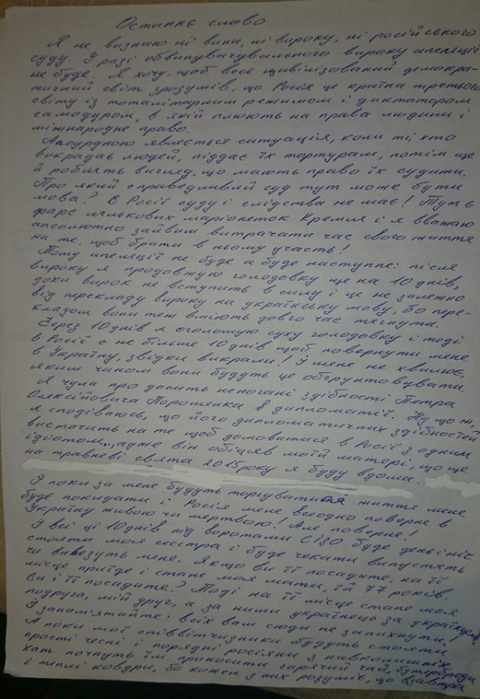 Останнє слово
Я не визнаю ні вини, ні вироку, ні російського
суду. У разі обвинувачувального вироку апеляції
не буде. Я хочу, щоб весь цивілізований демокра-
тичний світ зрозумів, що Росія це країна третього
світу із тоталітарним режимом і диктатором
самодуром, в якій плюють на права людини і
міжнародне право.
Абсурдною являється ситуація, коли ті, хто
викрадає людей, піддає їх тортурам, потім ще
й роблять вигляд, що мають право їх судити.
Про який справедливий суд тут може бути
мова? В Росії суду і слідства не має! Тут є
фарс лялькових маріонеток Кремля і я вважаю
абсолютно зайвим витрачати час свого життя
на те, щоб брати в ньому участь!
Тому апеляції не буде а буде наступне: після
вироку я продовжую голодовку ще на 10 днів,
доки вирок не вступить в силу і це не залежно
від перекладу вироку на українську мову, бо пере-
кладом вони теж вміють довго час тягнути.
Через 10 днів я оголошую суху голодовку і тоді
в Росії є не більше 10 днів щоб повернути мене
в Україну, звідки викрали! І мене не хвилює,
яким чином вони будуть це обґрунтовувати.
Я чула про досить непогані здібності Петра
Олексійовича Порошенка в дипломатії. Ну що ж,
я сподіваюсь, що його дипломатичних здібностей
вистачить на те щоб домовитися в Росії з одним
ідіотом, адже він обіцяв моїй матері, що ще
на травневі свята 2015 року я буду вдома.
І поки за мене будуть торгуватися життя мене
буде покидати і Росія мене всеодно поверне в
Україну живою чи мертвою! Але поверне!
І всі ці 10 днів під воротами СІЗО буде день і ніч
стояти моя сестра і буде чекати випустять
чи вивезуть мене. Якщо ви її посадите, на її
місце приїде і стане моя мати, їй 77 років.
Ви і її посадите? Тоді на її місце стане моя
подруга, мій друг, а за ними українець за українцем!
І запам'ятайте: всіх вам сюди не запихнути!
А поки мої співвітчизники будуть стояти
прості чесні і порядні росіяни з навколишніх
хат почнуть їм приносити гарячий чай, бутерброди
і теплі ковдри, бо кожен з них розуміє, що завтра